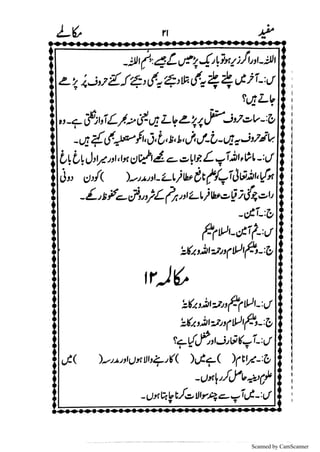 مفید ۲۱ مکالمے
اللہُ۔ اور اگر زیر ہو تو باریک پڑھیں گے جیسے: بِسْمِ اللہِ۔
س:۔ آخر میں چلتے چلتے یہ بھی بتلا دیجئے یہ بھی دیجئے کہ کتنے حروف پُر پڑھے
جاتے ہیں؟
ج:۔ سات حروف مستقل پر پڑھے جاتے ہیں یعنی منہ بھر کے آواز نکلتی ہے۔ وہ
ساتھ حروف یہ ہیں۔ خ، ص، ض، ط، ظ، غ، ق، انکو مستعلیہ بھی کہتے ہیں۔
س:۔ ماشاء اللہ آپ کے جوابات سے مجھے اطمینان ہوا، اور میرا دل باغ باغ
ہو گیا، اللہ تعالیٰ آپ کو علم نافع عطا فرمائے۔ اور مدرسہ ( ) کو دن دونی
رات چوگنی ترقیات عطا فرمائے اور ہر قسم کے شرور وفتن سے محفوظ رکھے۔
ج:۔ آمین۔
س:۔ ثم آمین۔ السلام علیکم
ج:۔ وعلیکم السلام ورحمۃ اللہ وبرکاتہ
مکالمہ ۱۲
س:۔ السلام علیکم ورحمۃ اللہ وبرکاتہ
ج:۔ وعلیکم السلام ورحمۃ اللہ وبرکاتہ
س:۔ آپ کا تعارف اور شغل کیا ہے؟
ج:۔ میرا نام ( ) ہے میں ( ) کا رہنے والا ہوں اور مدرسہ ( ) میں
علوم دینیہ حاصل کر رہا ہوں۔
س:۔ میں آپ سے چند سوالات کرنا چاہتا ہوں۔
Scanned by CamScanner